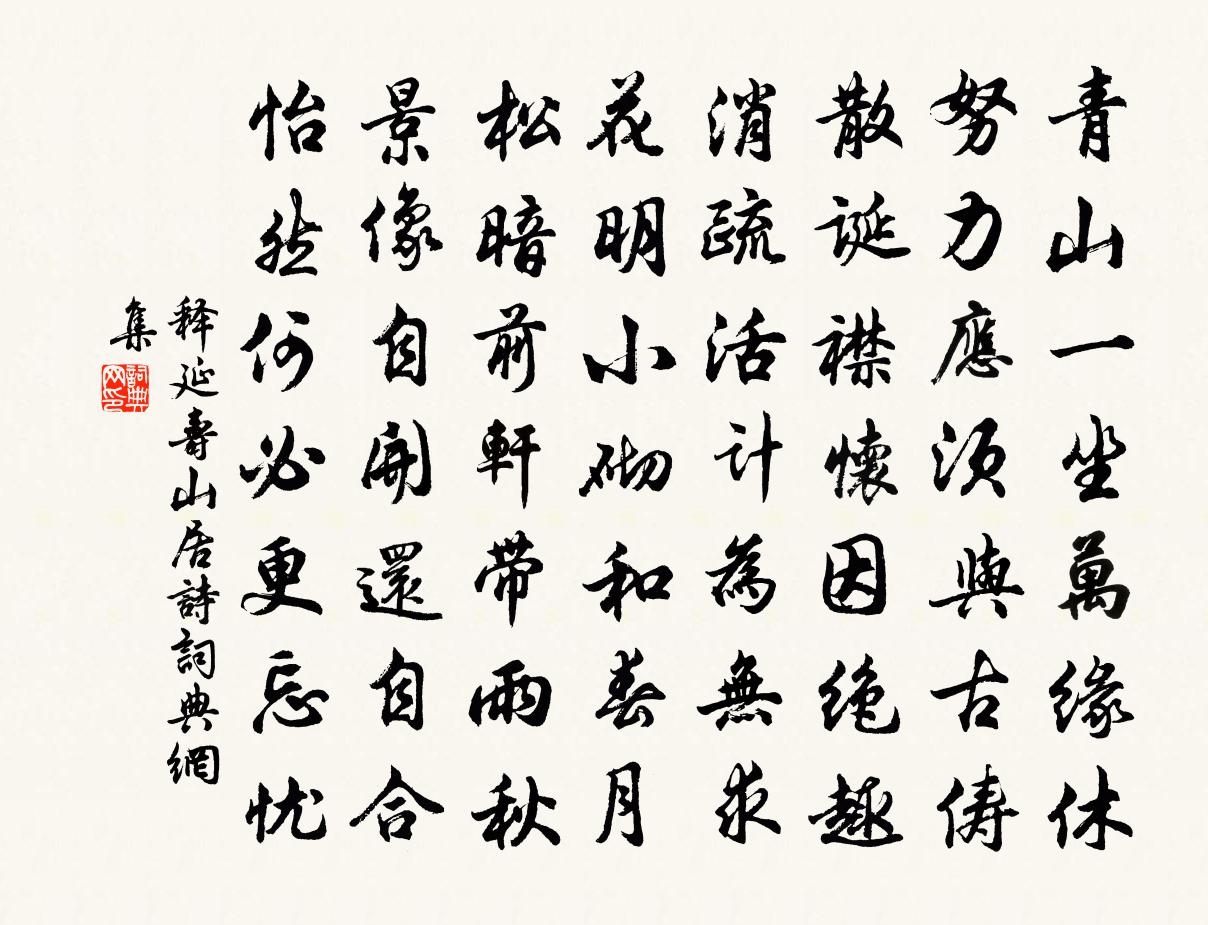 青山一坐萬緣休
努力應須與古儔
散誕襟懷因絕趣
消疏活計為無求
花明小砌和春月
松暗前軒帶雨秋
景像自開還自合
怡然何必更忘忧
释延壽山居詩詞典網
集
詞典
网印